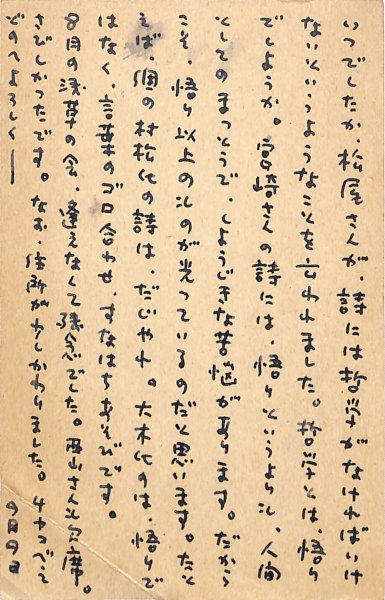 いつでしたか、松尾さんが、詩には哲学がなければいけ
ないというようなことを言われました。哲学とは、悟り
でしようか。宮崎さんの詩には、悟りというよりも、人間
としてのまつとうで、しようじきな苦悩があります。だから
こそ、悟り以上のものが光つているのだと思います。たと
えば、囲の村松氏の詩は、だじやれ。大木氏のは、悟りで
はなく、言葉のゴロ合わせ、すなはちあそびです。
8月の浅草の会、逢えなくて残念でした。西山さんも欠席。
さびしかつたです。なお、住所がわしかわりました。チヤコべえ
どのへよろしく——
9月9日